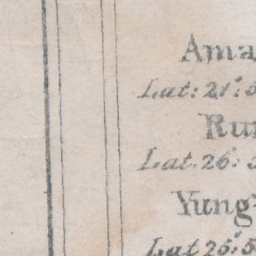 Ama
Lat: 21°. 5
Ru
Lat. 26°.
Yung
Lat 25°. 5